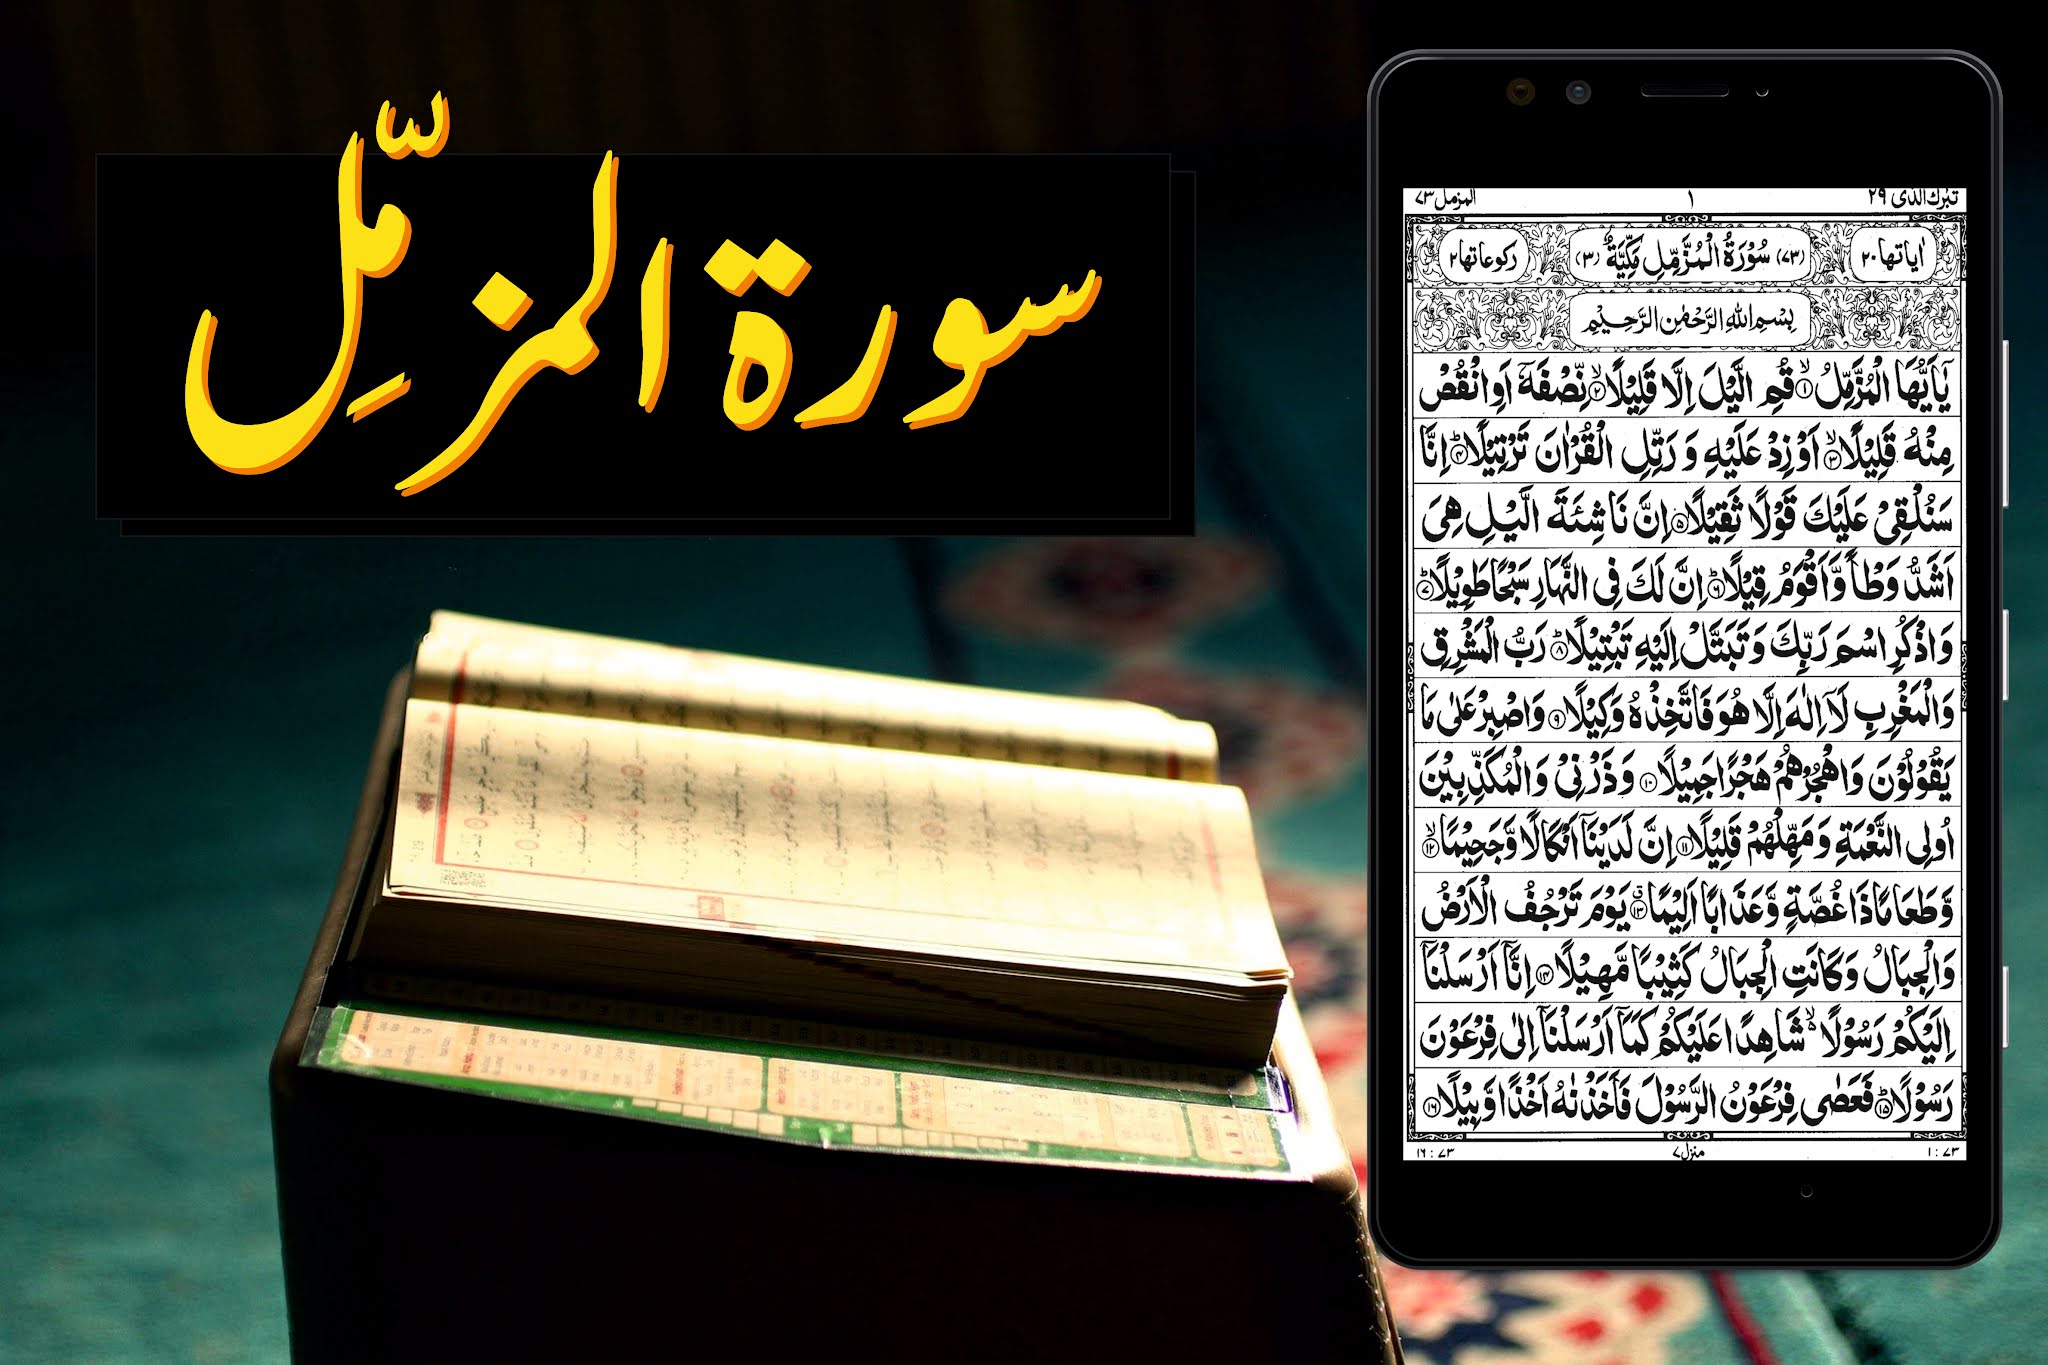 سورة المزمِّل
المزمل ٧٣
١
تبرك الذی ٢٩
رکوعاتها ٢
(٧٣) سُوْرَةُ الْمُزَّمِّلِ مَكِّيَّةٌ (٣)
اٰیاتها ٢٠
بِسْمِ اللهِ الرَّحْمٰنِ الرَّحِيْمِ
يٰٓاَيُّهَا الْمُزَّمِّلُ ۙ١ قُمِ الَّيْلَ اِلَّا قَلِيْلًا ۙ٢ نِّصْفَهٗٓ اَوِ انْقُصْ
مِنْهُ قَلِيْلًا ۙ٣ اَوْ زِدْ عَلَيْهِ وَ رَتِّلِ الْقُرْاٰنَ تَرْتِيْلًا ؕ٤ اِنَّا
سَنُلْقِيْ عَلَيْكَ قَوْلًا ثَقِيْلًا ٥ اِنَّ نَاشِئَةَ الَّيْلِ هِيَ
اَشَدُّ وَطْاً وَّاَقْوَمُ قِيْلًا ؕ٦ اِنَّ لَكَ فِى النَّهَارِ سَبْحًا طَوِيْلًا ؕ٧
وَاذْكُرِ اسْمَ رَبِّكَ وَتَبَتَّلْ اِلَيْهِ تَبْتِيْلًا ؕ٨ رَبُّ الْمَشْرِقِ
وَالْمَغْرِبِ لَآ اِلٰهَ اِلَّا هُوَ فَاتَّخِذْهُ وَكِيْلًا ٩ وَاصْبِرْ عَلٰى مَا
يَقُوْلُوْنَ وَاهْجُرْهُمْ هَجْرًا جَمِيْلًا ١٠ وَذَرْنِيْ وَالْمُكَذِّبِيْنَ
اُولِى النَّعْمَةِ وَمَهِّلْهُمْ قَلِيْلًا ١١ اِنَّ لَدَيْنَآ اَنْكَالًا وَّجَحِيْمًا ۙ١٢
وَّطَعَامًا ذَا غُصَّةٍ وَّعَذَابًا اَلِيْمًا ۗ١٣ يَوْمَ تَرْجُفُ الْاَرْضُ
وَالْجِبَالُ وَكَانَتِ الْجِبَالُ كَثِيْبًا مَّهِيْلًا ١٤ اِنَّآ اَرْسَلْنَآ
اِلَيْكُمْ رَسُوْلًا ۙ شَاهِدًا عَلَيْكُمْ كَمَآ اَرْسَلْنَآ اِلٰى فِرْعَوْنَ
رَسُوْلًا ؕ١٥ فَعَصٰى فِرْعَوْنُ الرَّسُوْلَ فَاَخَذْنٰهُ اَخْذًا وَّبِيْلًا ١٦
١ : ٧٣
منزل ٧
١٦ : ٧٣